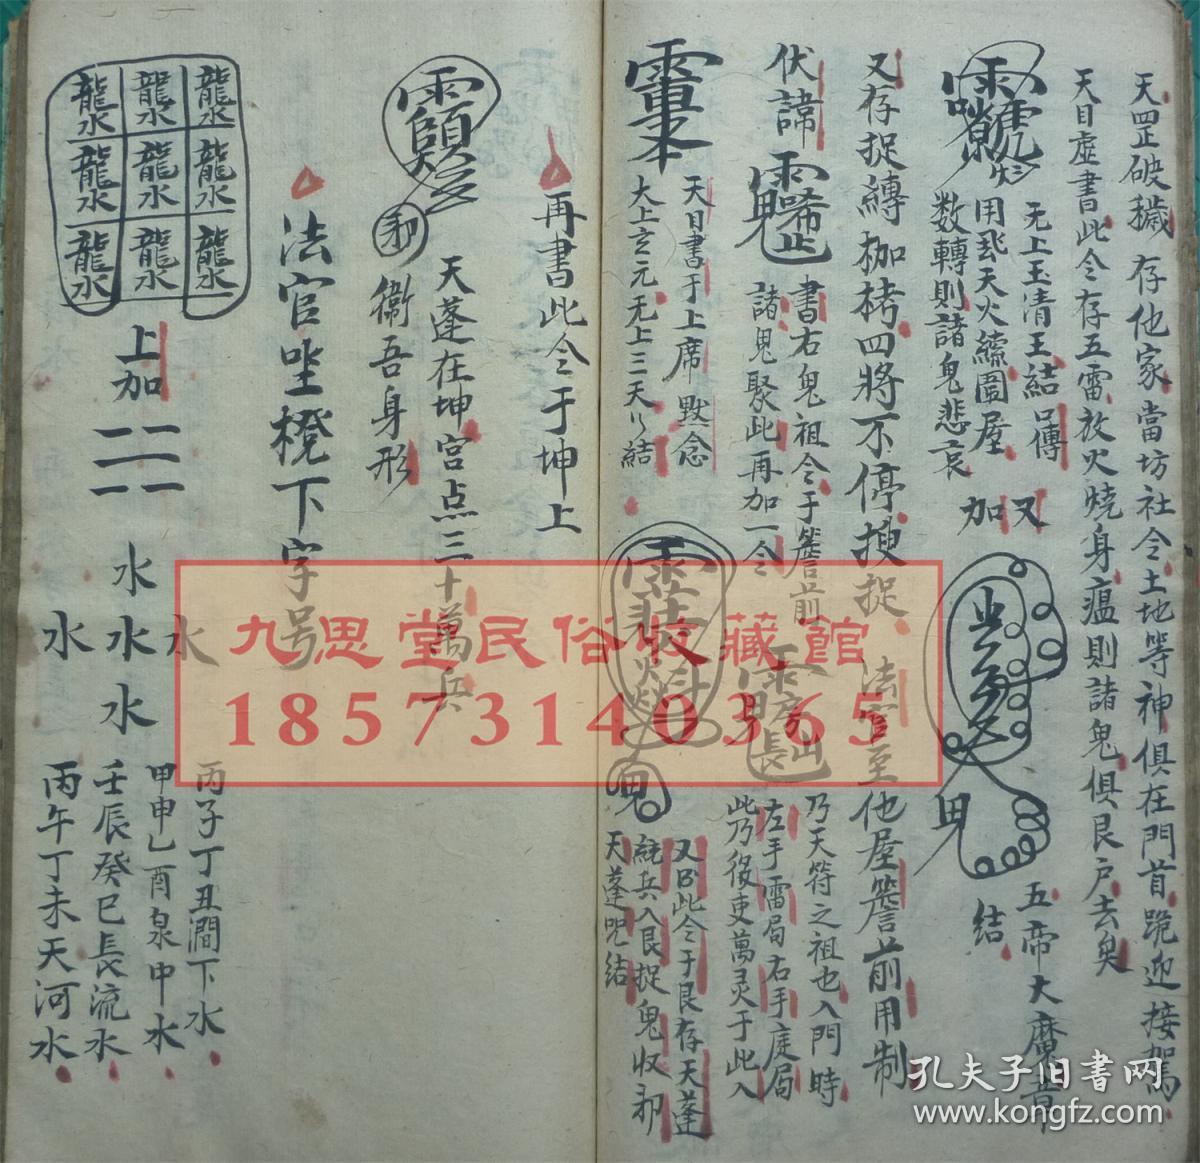 天罡破穢 存他家當坊社令土地等神俱在門首跪迎接駕
天目虛書此令存五雷放火燒身瘟則諸鬼俱艮户去矣
无上玉清王結口傳
用武天火繞圍屋
数轉則諸鬼悲哀
又加
結
五帝大魔音
又存捉縛枷栲四將不停搜捉 法官至他屋簷前用制
伏諱
書右鬼祖令于簷前
諸鬼聚此再加一令
乃天符之祖也入門時
左手雷局右手庭局
此乃後吏萬灵于此入
天目書于上席默念
大上玄元无上三天ミ結
又曰此令于艮存天蓬
統兵入艮捉鬼收邪
天蓬咒結
再書此令于坤上
天蓬在坤宫点三十萬兵
衛吾身形
法官坐櫈下字号
龍水 龍水 龍水
龍水 龍水 龍水
龍水 龍水 龍水
上加
水
水 水 水
水
丙子丁丑澗下水
甲申乙酉泉中水
壬辰癸巳長流水
丙午丁未天河水
九思堂民俗收藏館
18573140365
孔夫子旧书网
www.kongfz.com